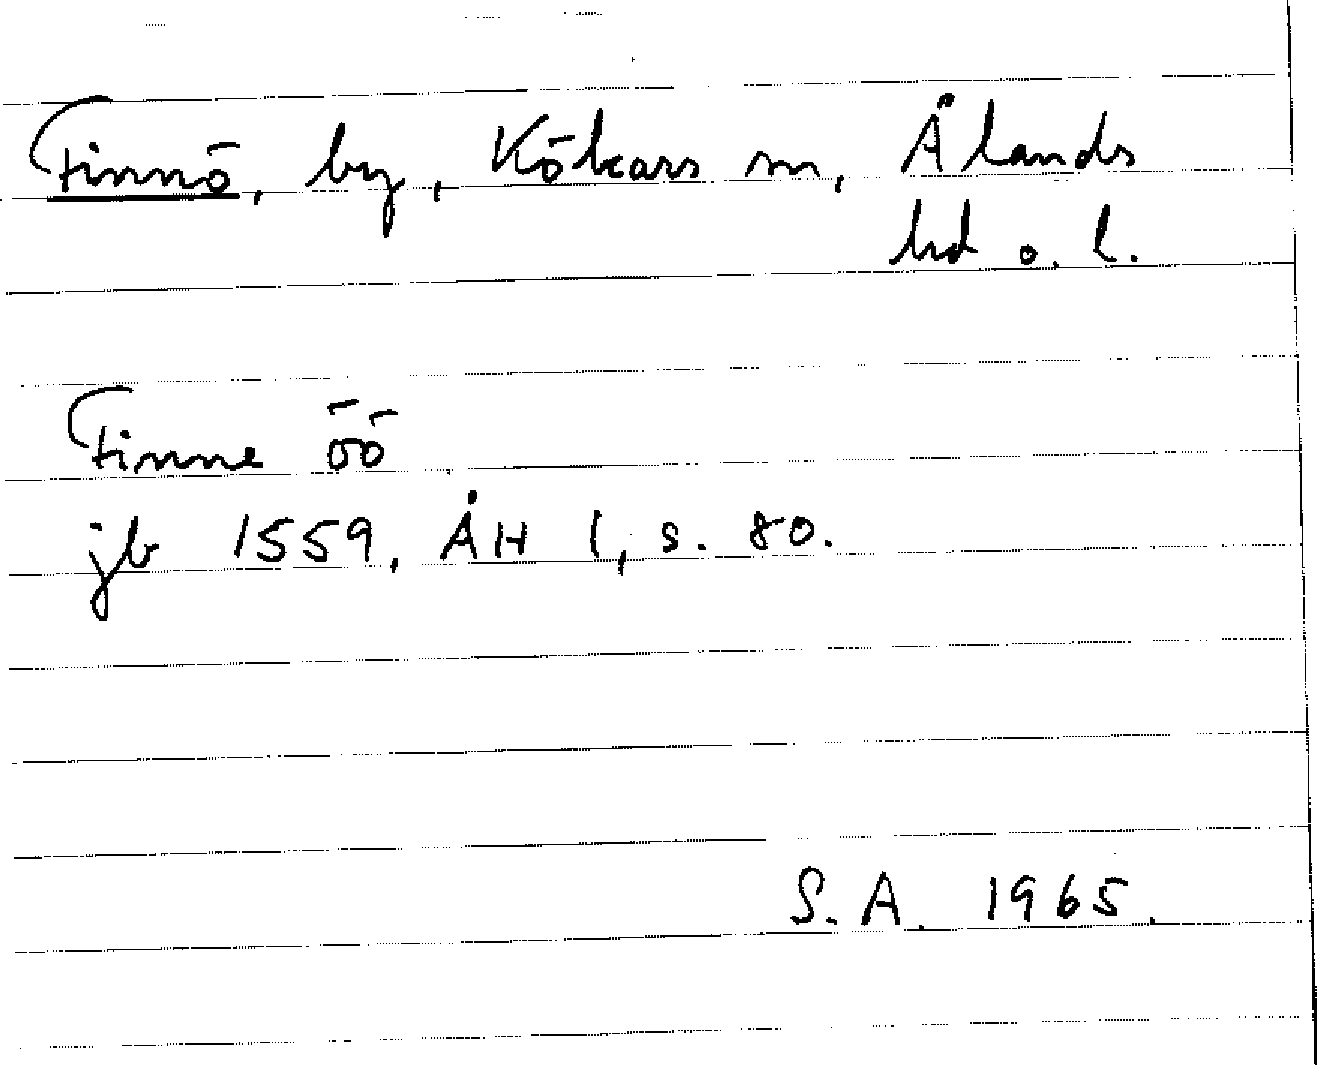 Finnö, by, Kökars sn, Ålands
hd o. l.
Finne öö
jb 1559, ÅH I, s. 80.
S. A. 1965.